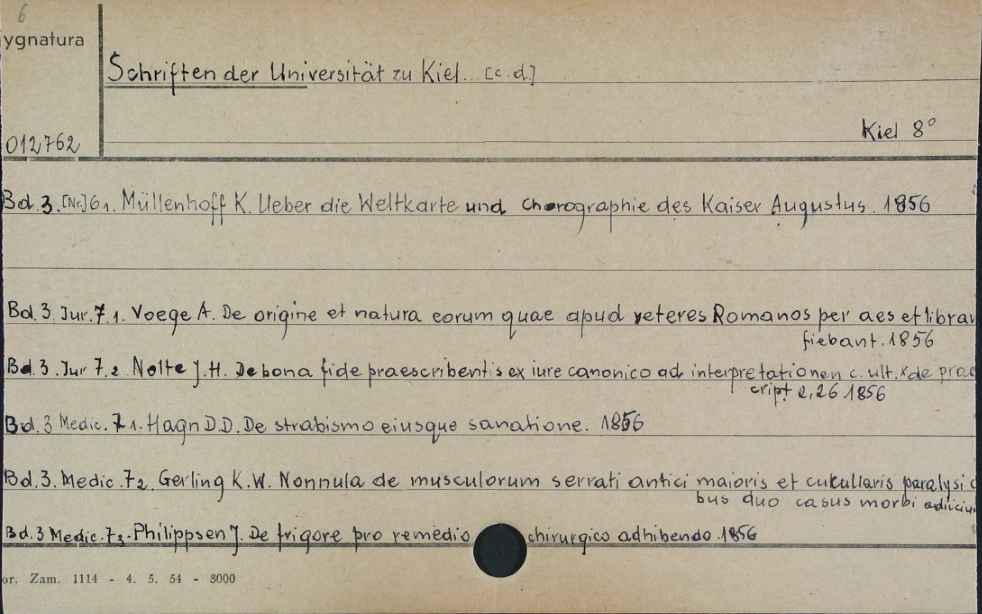 6
ygnatura
Schriften der Universität zu Kiel. [c.d.]
Kiel 8°
012762
Bd. 3. [Nr.] 6 1. Müllenhoff K. Ueber die Weltkarte und Chorographie des Kaiser Augustus. 1856
Bd. 3. Jur. 7. 1. Voege A. De origine et natura eorum quae apud veteres Romanos per aes et libram
fiebant. 1856
Bd. 3. Jur 7. 2. Nolte J.H. De bona fide praescribentis ex iure canonico ad interpretationen c. ult. x de prae
cript 2,26 1856
Bd. 3 Medic. 7 1. Hagn D.D. De strabismo eiusque sanatione. 1856
Bd. 3. Medic. 7 2. Gerling K.W. Nonnula de musculorum serrati antici maioris et cukullaris paralysi
bus duo casus morbi
Bd. 3 Medic. 7 3. Philippsen J. De frigore pro remedio chirurgico adhibendo 1856
or. Zam. 1114 - 4. 5. 54 - 8000